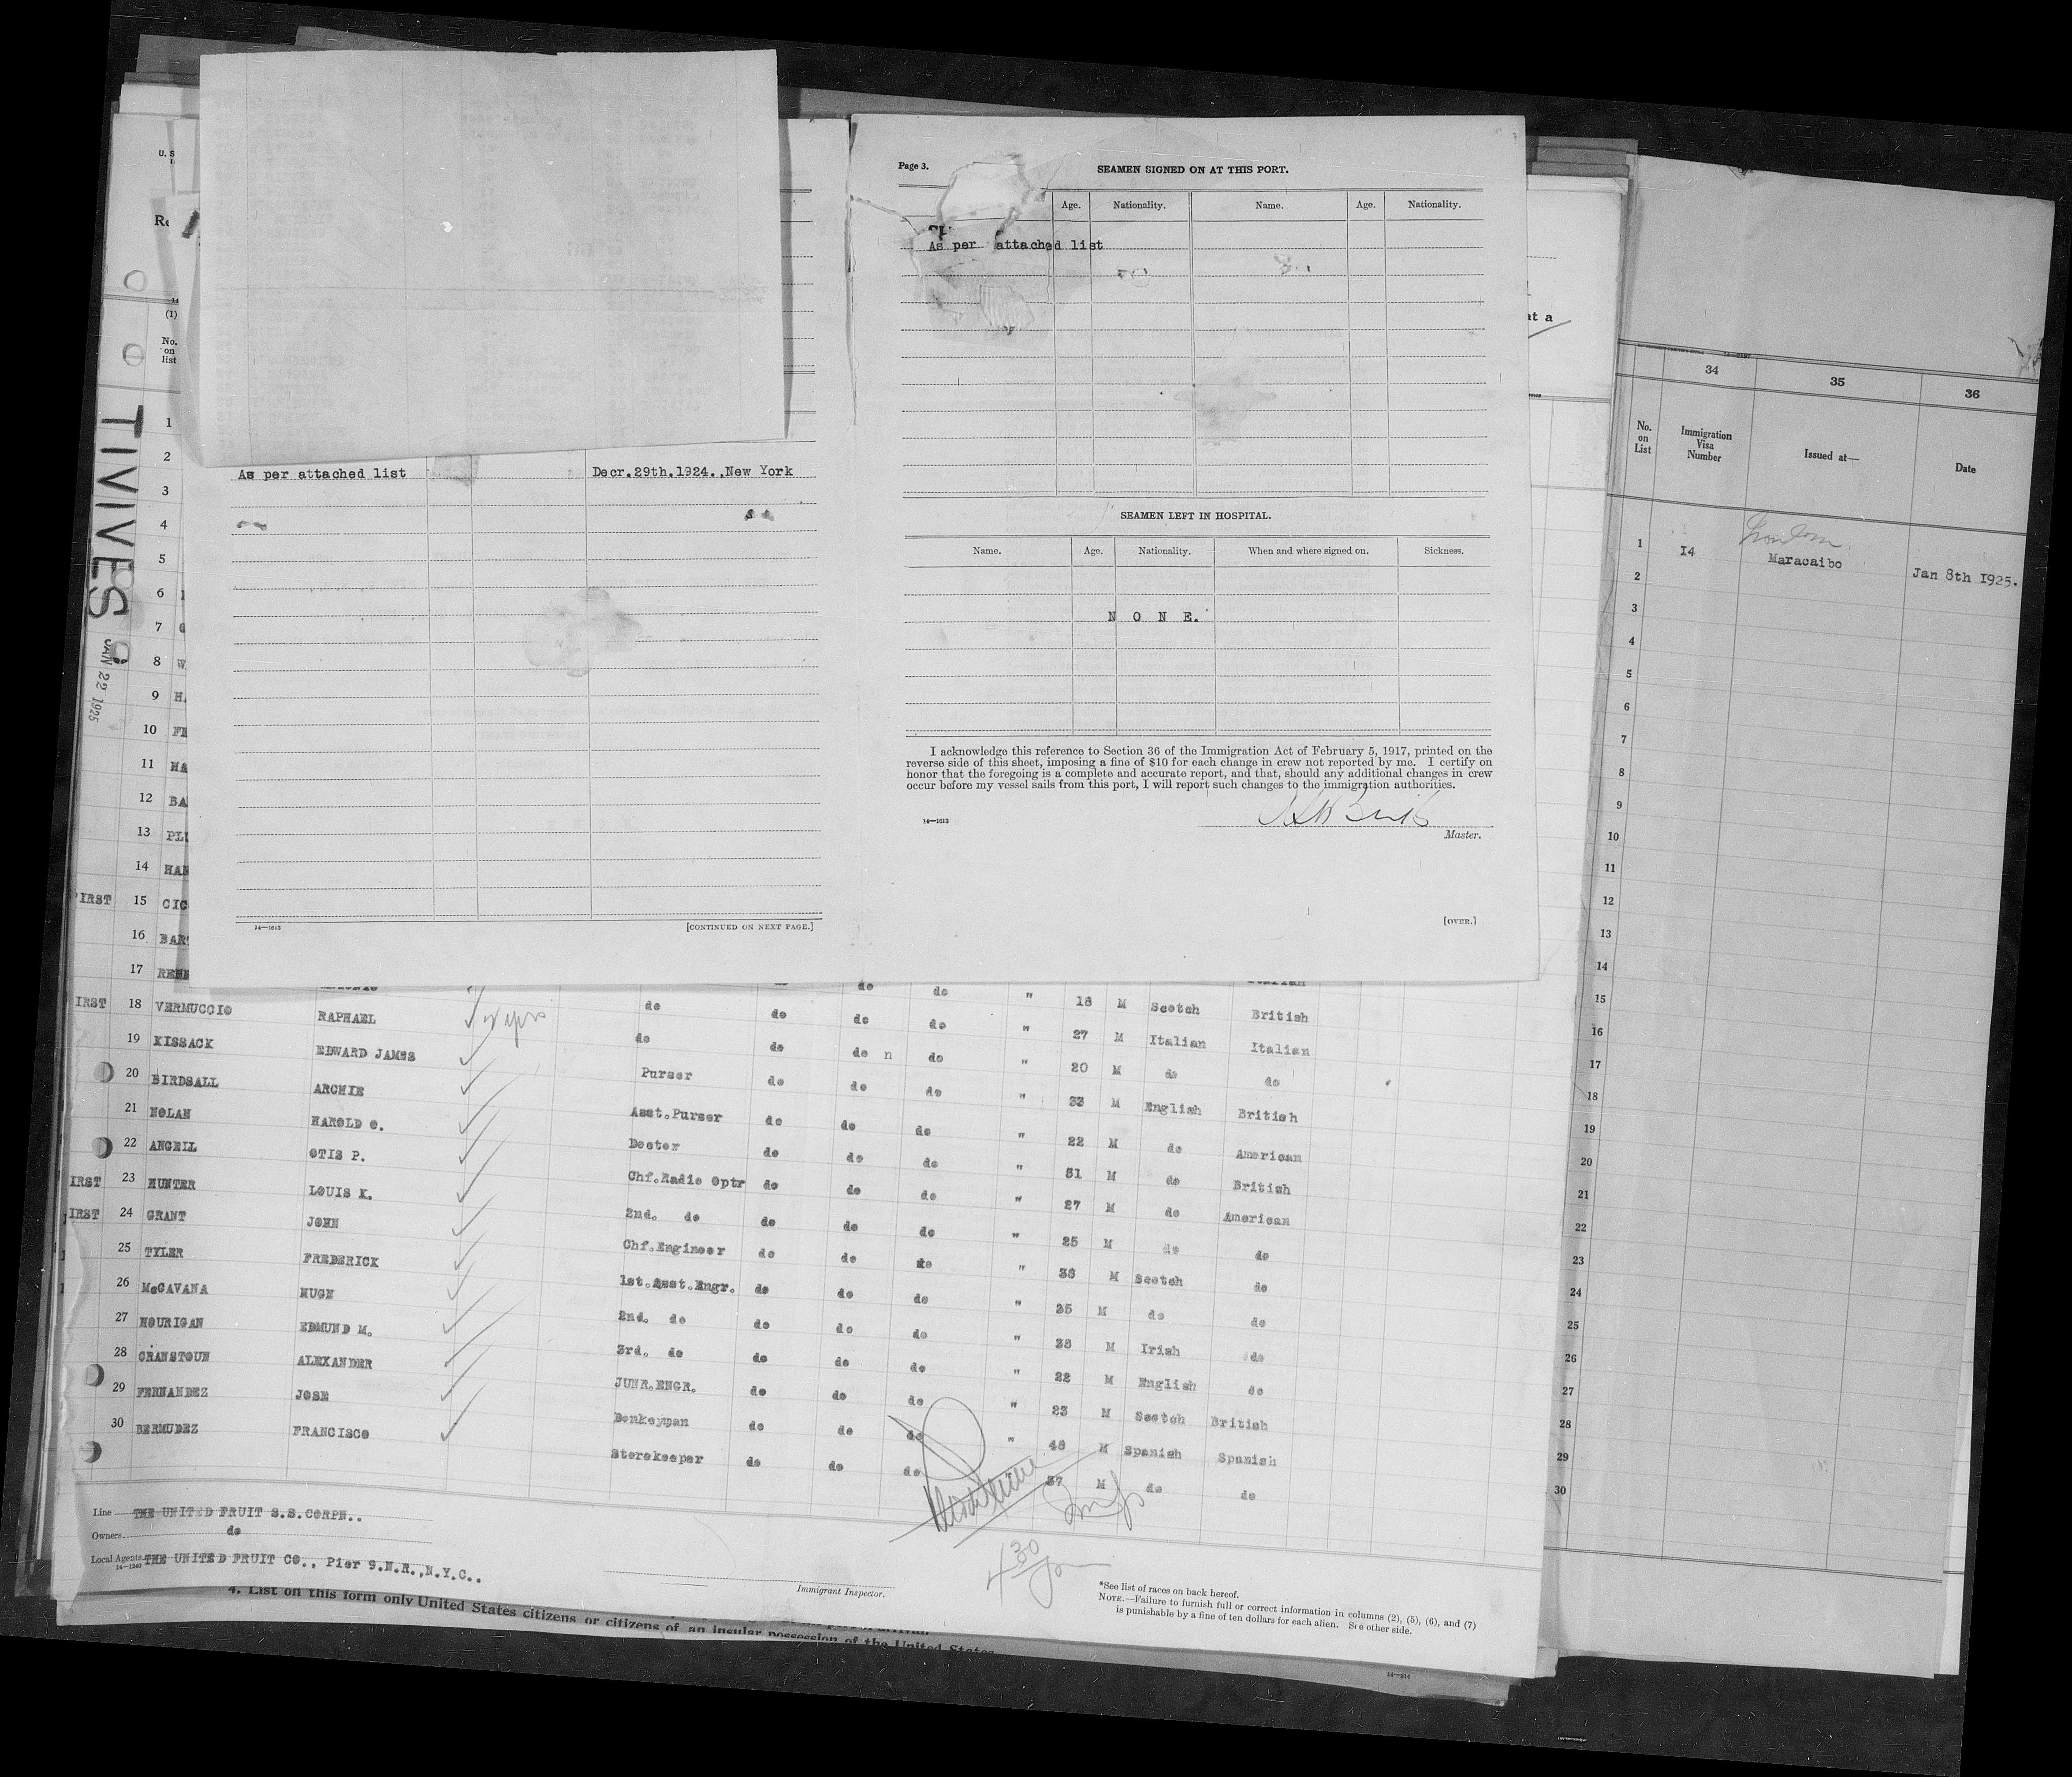 Page 3.
SEAMEN SIGNED ON AT THIS PORT.
Age. Nationality. Name. Age. Nationality.
As per attached list
SEAMEN LEFT IN HOSPITAL.
Name. Age. Nationality. When and where signed on. Sickness.
N O N E.
I acknowledge this reference to Section 36 of the Immigration Act of February 5, 1917, printed on the
reverse side of this sheet, imposing a fine of $10 for each change in crew not reported by me. I certify on
honor that the foregoing is a complete and accurate report, and that, should any additional changes in crew
occur before my vessel sails from this port, I will report such changes to the immigration authorities.
14—1613
Master.
[OVER.]
As per attached list Decr.29th.1924.,New York
14—1613 [CONTINUED ON NEXT PAGE.]
U. S
Re
(1)
No.
on
list
TIVIVES
JAN 22 1925
1
2
3
4
5
6
7
8 W
9 H
10 FE
11 HA
12 BA
13 PL
14 HAN
IRST 15 CIC
16 BAR do do do do " 18 M Scotch British
17 REN do do do do " 27 M Italian Italian
IRST 18 VERMUCCIO RAPHAEL do do do n do " 20 M do do
19 KISSACK EDWARD JAMES Purser do do do " 33 M English British
20 BIRDSALL ARCHIE Asst.Purser do do do " 22 M do American
21 NOLAN HAROLD O. Doctor do do do " 51 M do British
22 ANGELL OTIS P. Chf.Radio Optr do do do " 27 M do American
IRST 23 HUNTER LOUIS K. 2nd. do do do do " 25 M do do
IRST 24 GRANT JOHN Chf.Engineer do do do " 38 M Scotch do
25 TYLER FREDERICK 1st.Asst.Engr. do do do " 35 M do do
26 McCAVANA HUGH 2nd. do do do do " 38 M Irish do
27 HOURIGAN EDMUND M. 3rd. do do do do " 22 M English do
28 CRANSTOUN ALEXANDER JUNR.ENGR. do do do " 23 M Scotch British
29 FERNANDEZ JOSE Donkeyman do do do " 48 M Spanish Spanish
30 BERMUDEZ FRANCISCO Storekeeper do do do 37 M do do
Line THE UNITED FRUIT S.S.CORPN..
Owners do
Local Agents THE UNITED FRUIT CO., Pier 9.N.R.,N.Y.C..
14—1240
Immigrant Inspector.
4 30
*See list of races on back hereof.
NOTE.—Failure to furnish full or correct information in columns (2), (5), (6), and (7)
is punishable by a fine of ten dollars for each alien. See other side.
4. List on this form only United States citizens or citizens of an insular possession of the United States
14—214
at a
34 35 36
No. on List Immigration Visa Number Issued at— Date
1 14 Maracaibo Jan 8th 1925.
2
3
4
5
6
7
8
9
10
11
12
13
14
15
16
17
18
19
20
21
22
23
24
25
26
27
28
29
30